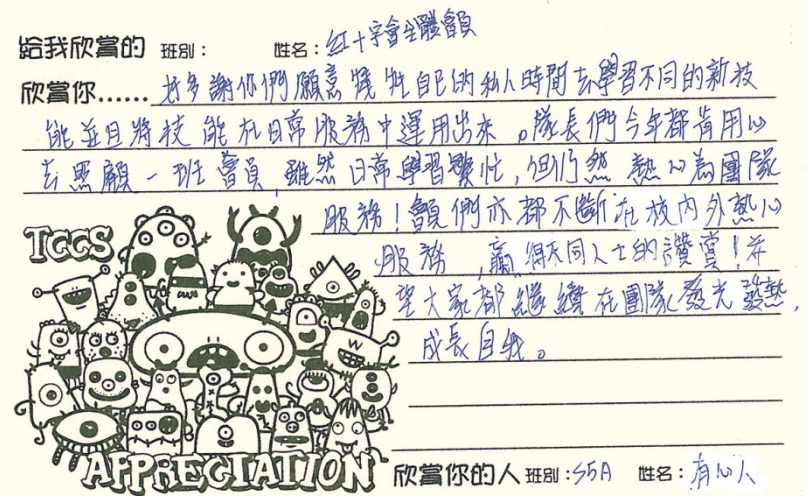 給我欣賞的 班別： 姓名：紅十字會全體會員
欣賞你…… 好多謝你們願意犧牲自己的私人時間去學習不同的新技
能並且將技能在日常服務中運用出來。隊長們今年都肯用心
去照顧一班會員，雖然日常學習繁忙，但仍然熱心為團隊
服務！會員們亦都不斷在校內外熱心
服務，贏得不同人士的讚賞！希
望大家都繼續在團隊發光發熱，
成長自我。
TCCS
APPRECIATION
欣賞你的人 班別：S5A 姓名：有心人